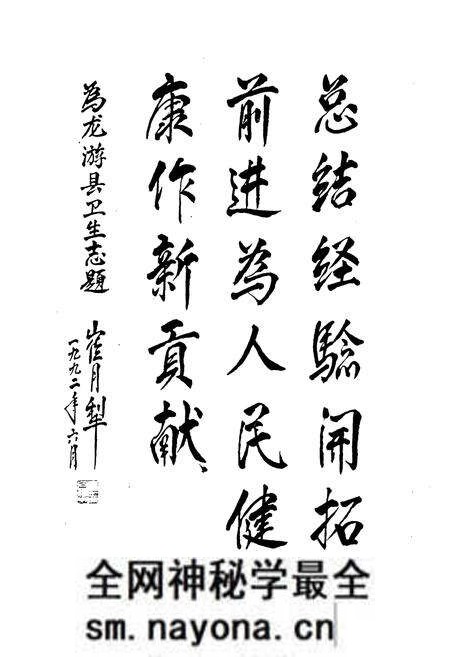 总结经验开拓
前进為人民健
康作新贡献
為龙游县卫生志题
崔月犁
一九九二年六月
全网神秘学最全
sm.nayona.cn